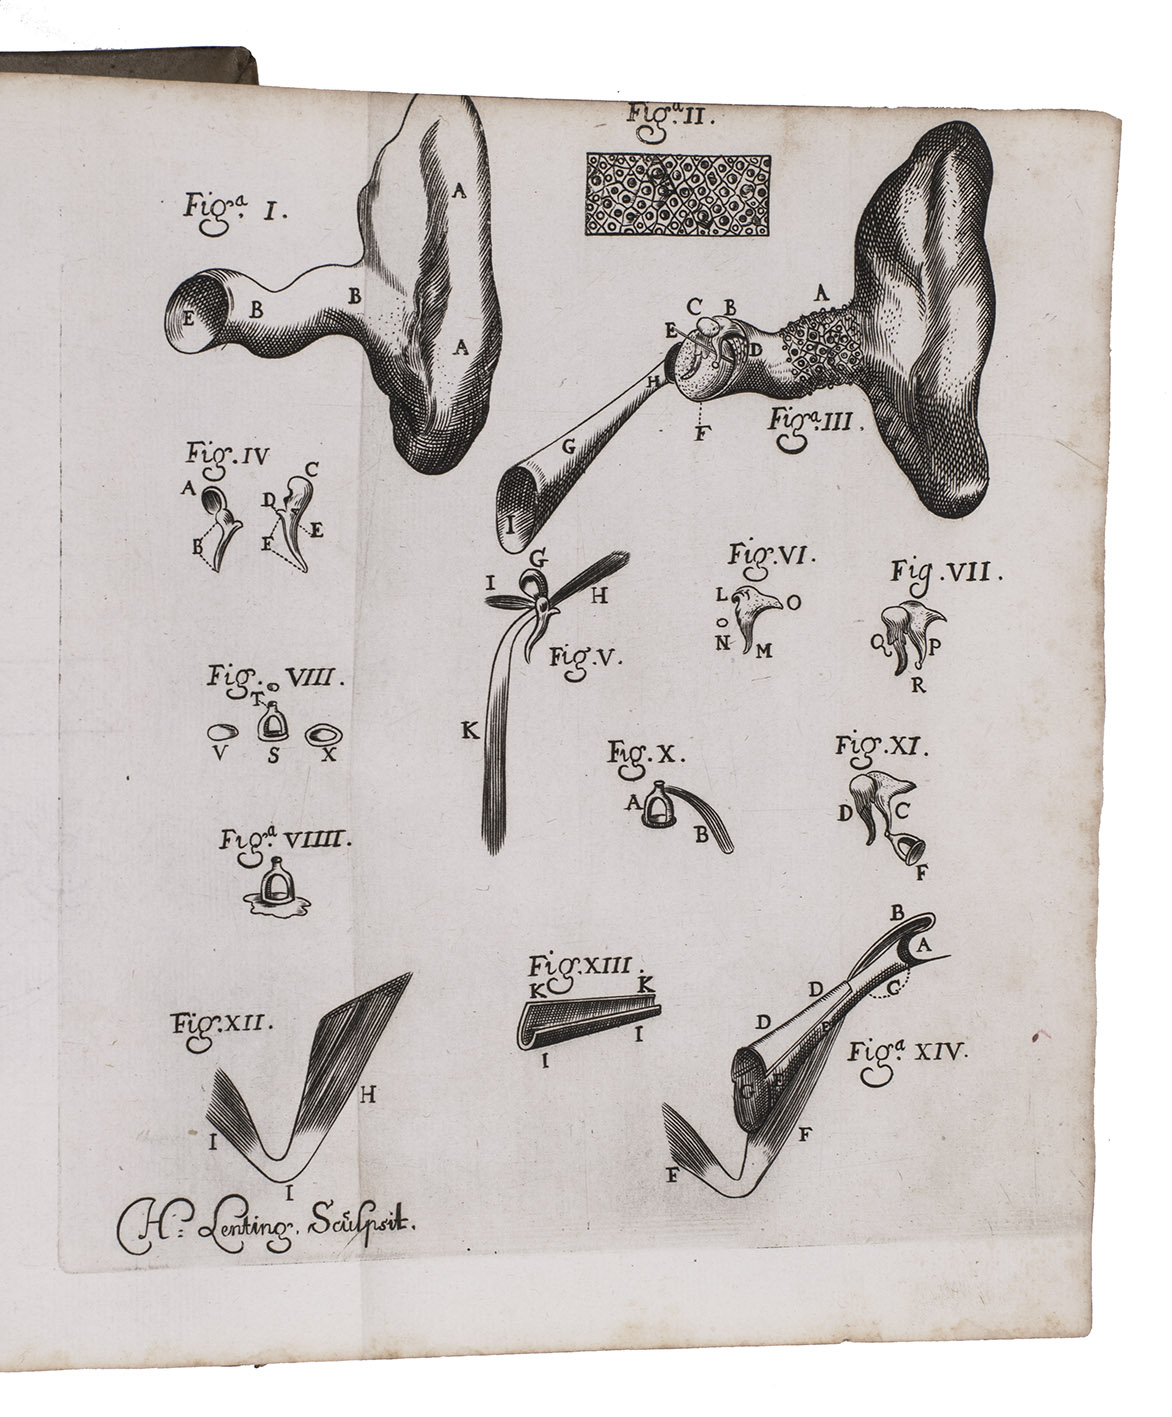 Fig.ª II.
Fig.ª I.
A
A
B
B
E
C
B
A
E
D
H
F
G
I
Fig.ª III.
Fig. IV
A
B
C
D
E
F
G
I
H
K
Fig. V.
Fig. VI.
L
O
O
N
M
Fig. VII.
Q
P
R
Fig. VIII.
T
V
S
X
Fig. X.
A
B
Fig. XI.
D
C
F
Fig.ª VIIII.
Fig. XII.
H
I
I
Fig. XIII.
K
K
I
I
B
A
C
D
D
E
E
G
F
F
Fig.ª XIV.
H: Lenting. Sculpsit.